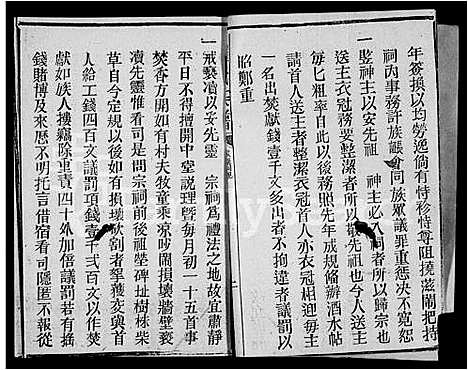 年簽換以均勞逸倘有恃矜恃尊阻撓滋鬧把持
祠內事務許族讜仝同族眾議罪重懲决不寬恕
一竪神主以安先祖 神主必入祠者所以歸宗也
送主者衣冠務要整潔者所以敬先祖也今議
每匕粗率自此以後照先年成規備辦酒水帖
請首人送主者整潔衣冠首人亦衣冠相迎與送
主之人一體行禮安位者不拘違者議罰以
昭鄭重
一名出焚獻錢壹千文多者不拘違者議罰以
一戒褻瀆以安先靈 宗祠爲禮法之地故宜肅靜
平日不得擅開中堂說理暨每月初一十五首事
焚獻尤不得有村夫牧童乘涼吵鬧損壞牆壁褻
瀆先靈惟看司是問祠前後祖塋碑址樹株柴
草自今定規以後如有損壞砍割者拏獲交與首
人給工錢四百文議罰項錢壹千弍百文以作焚
獻如族人摟竊除重責四十外加倍議罰若有窩
錢賭博及來歷不明托言借宿看司隱匿不報從